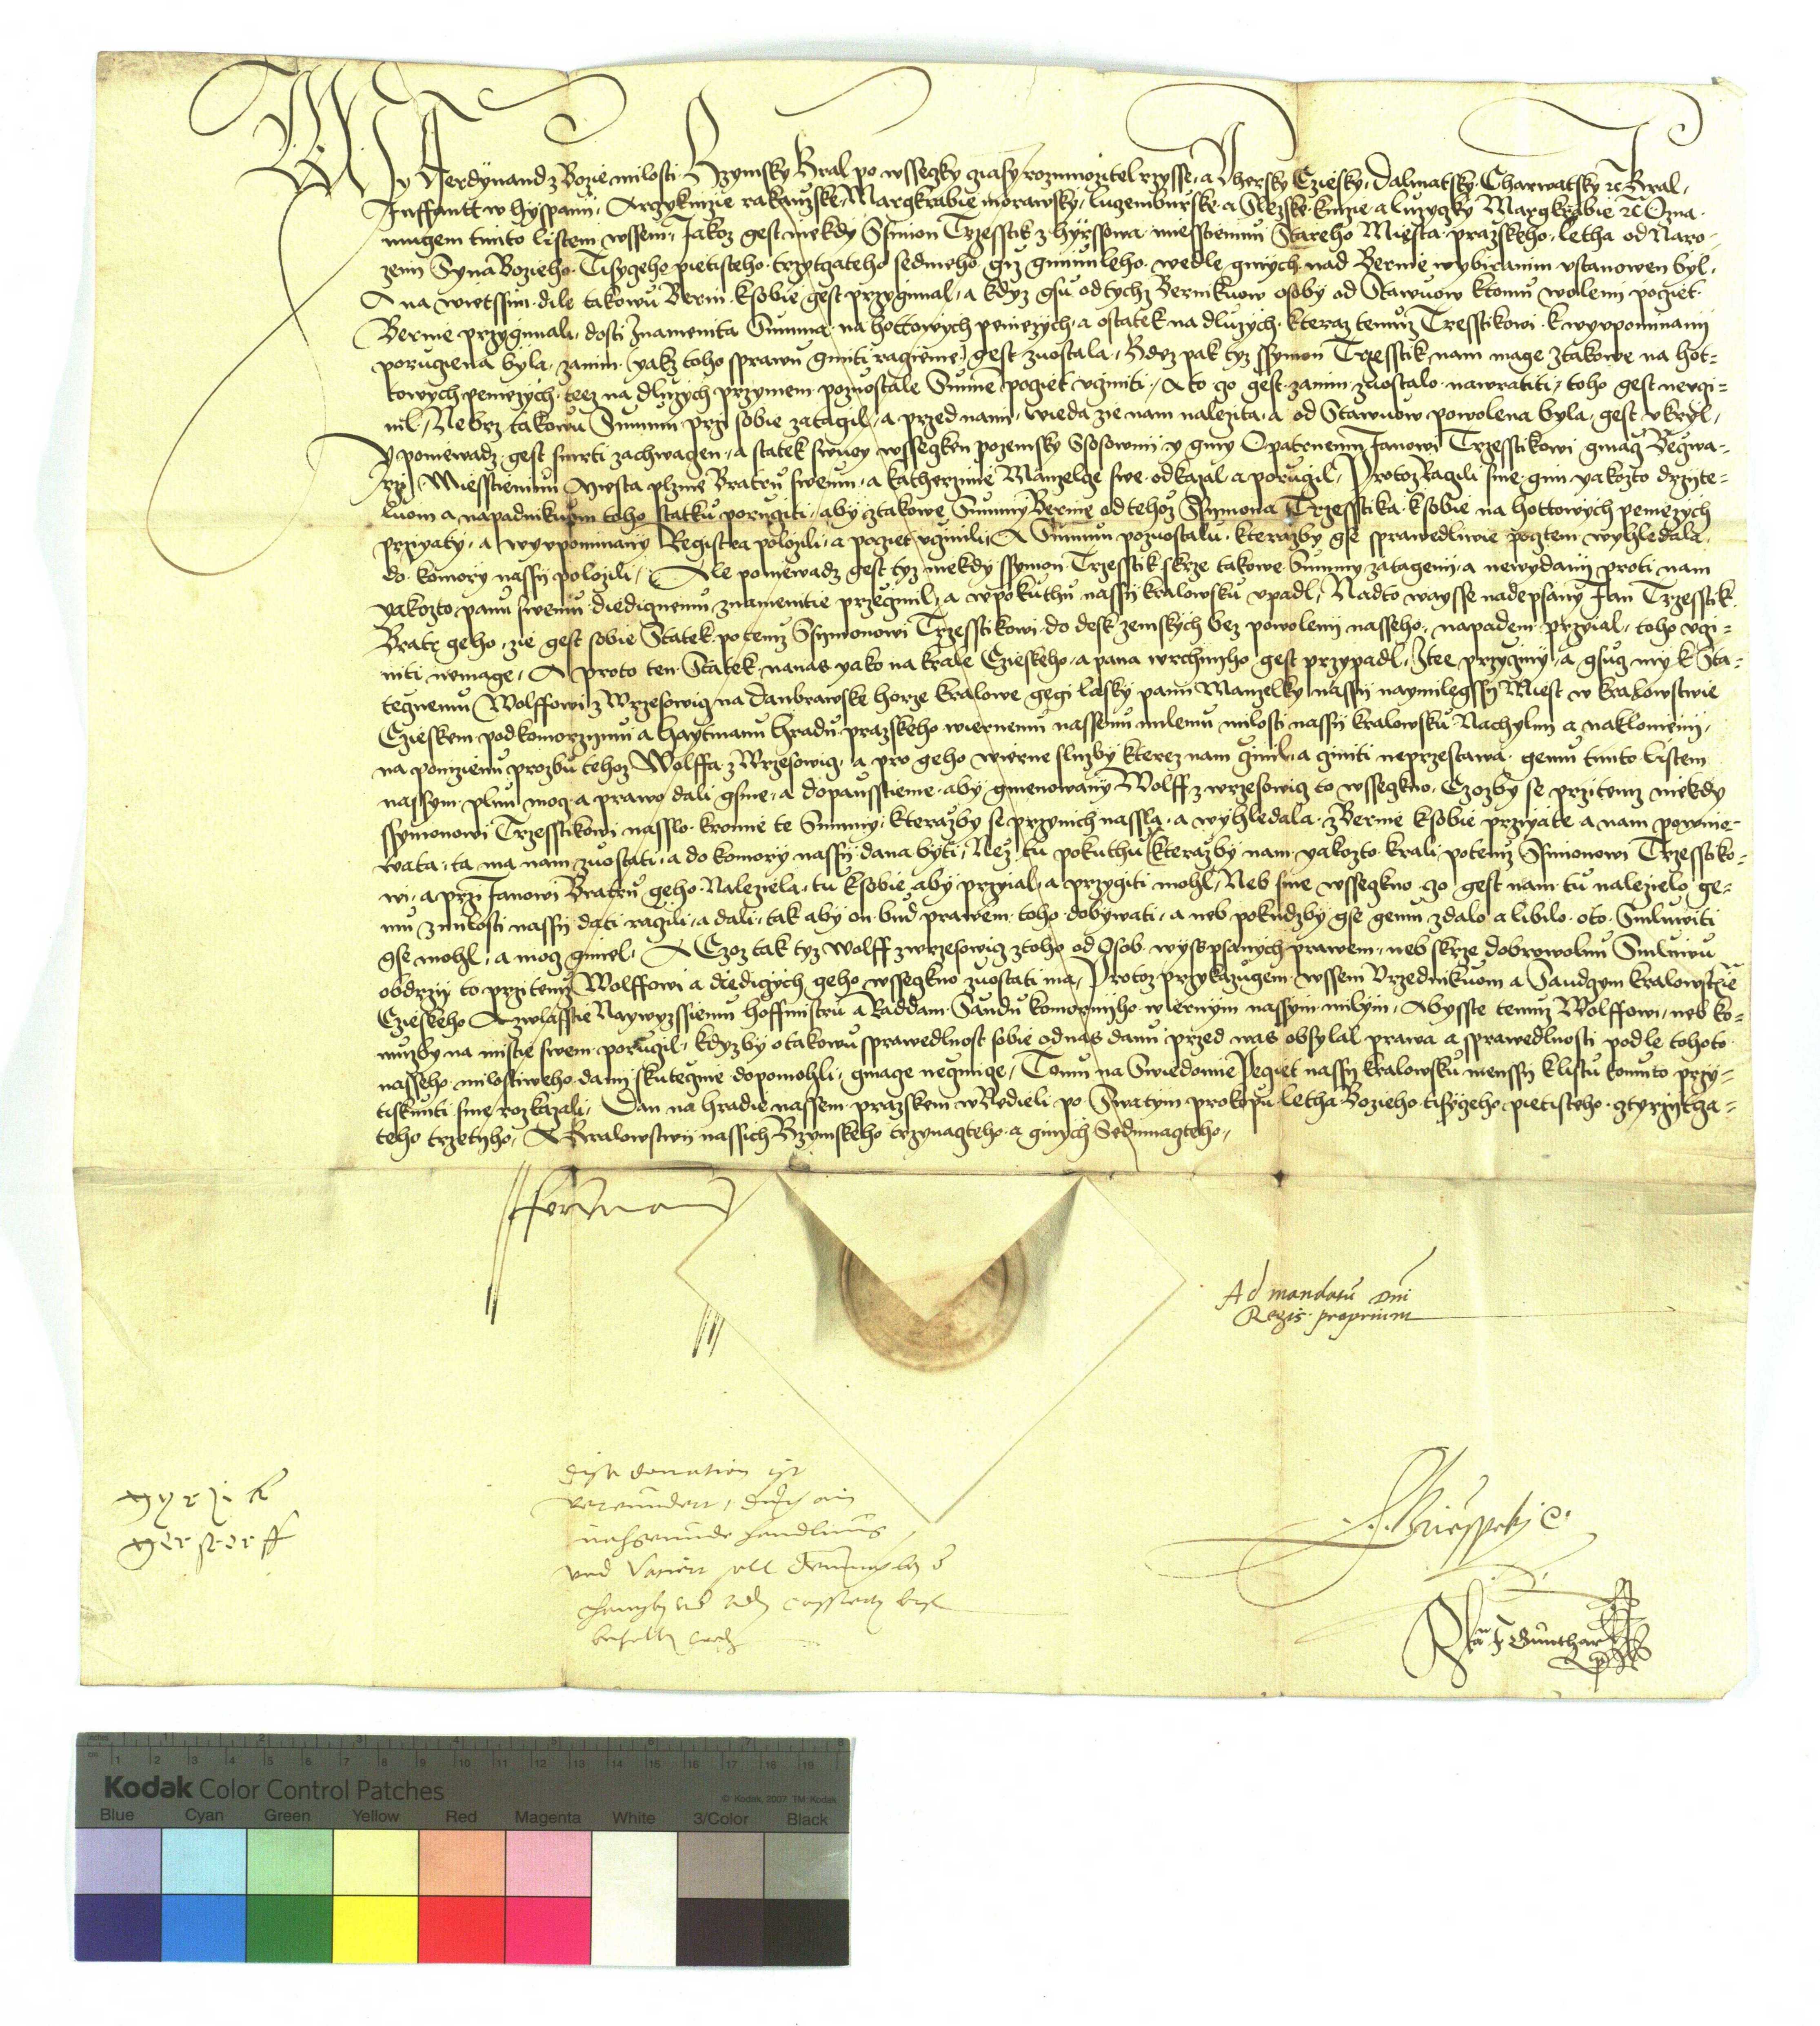 My Ferdynand z Bozie milosti Rzymsky Kral po wssegky czasy rozmnozitel rzysse, a Vhersky Cziesky, Dalmatsky Charwatsky ꝛc Kral,
Inffantt w Hyspanij, Arcyknize rakauzske, Margkrabie morawsky, luczemburske a Slezske knize a luzyczky Margkrabie ꝛc Ozna-
mugem timto listem wssem, Jakoz gest niekdy Ssimon Trzesstik z Hyrssowa miesstienin Stareho Miesta prazskeho, letha od Naro-
zenij Syna Bozieho Tisyczeho pietisteho trzytczateho sedmeho giz gminuleho wedle ginych nad Bernie wybiranim vstanowen byl,
A na wietssim dile takowu Berni k sobie gest przygimal, a kdyz gsu od tychz Bernikuow osoby od Stawuow k tomu woleni poczet
Bernie przygimali, dosti znamenita Summa na hottowych peniezych, a ostatek na dluzych, kteraz temuz Trzesstikowi k wyvpominanij
porucziena byla, za nim (yakz toho sprawu gmiti raczieme) gest zuostala, Kdez pak tyz Ssymon Trzesstik nam mage z takowe na hot-
towych peniezych, teez na dluzych przigmem pozuostale Summe poczet vcziniti, A to czo gest za nim zuostalo nawratiti, toho gest nevczi-
nil, Nebrz takowu Summu przi sobie zatagil, a przed nami, wieda zie nam nalezita, a od Stawuow powolena byla, gest vkryl,
Y poniewadz gest smrti zachwaczen, a statek swuoy wssegken pozemsky Ssosowni y giny Opatrnemu Janowi Trzesstikowi ginacz Begwa-
ry Miesstieninu Miesta plznie Bratru swemu, a Katherzinie Manzelcze swe odkazal a poruczil, Protoz Raczili sme gim yakozto drzite-
luom a napadnikuom toho statku poruczyti, aby z takowe Summy Bernie od tehoz Ssymona Trzesstika k sobie na hottowych peniezych
przyaty, a wyvpominany Registra polozili, a poczet vczinili, A Summu pozuostalu, kterazby gse sprawedliwie pocztem wyhledala,
do komory nassij polozili, Ale poniewadz gest tyz niekdy Ssymon Trzesstik skrze takowe Summy zatagenij, a newydanij proti nam
yakozto panu swemu diediczнemu znamenitie przeczinil, a w pokuthu nassij kralowsku vpadl, Nadto waysse nadepsany Jan Trzesstik
Bratr geho, zie gest sobie Statek po temz Ssymonowi Trzesstikowi do desk zemskych bez powolenij nasseho, napadem przyial, toho vczi-
niti nemage, A proto ten Statek na nas yako na krale Czieskeho, a pana wrchniho gest przypadl, Z tee przyczyny, a gsucz my k Sta-
tecznemu Wolffowi z Wrzesowicz na Daubrawske horze Kralowe gegi lasky panij Manzelky nassij naymilegssij Miest w kralowstwie
Czieskem podkomorzymu a Haytmanu hradu prazskeho wiernemu nassemu milemu milosti nassij kralowsku Nachylni a naklonieni,
na ponizienu prozbu tehoz Wolffa z Wrzesowicz, a pro geho wierne sluzby kterez nam czinil, a cziniti neprzestawa, gemu timto listem
nassym plnu mocz a prawo dali gsme, a dopausstieme, aby gmenowany Wolff z wrzesowicz to wssegkno, Czozby se przi temz niekdy
Ssymonowi Trzesstikowi nasslo, kromie te Summy, kterazby se przi nich nassla, a wyhledala z Bernie k sobie przyate, a nam powin-
wata, ta ma nam zuostati, a do komory nassij dana byti, Nez tu pokuthu kterazby nam yakozto krali, po temz Ssimonowi Trzesstiko-
wi, a przi Janowi Bratru geho Nalezela, tu k sobie aby przyial, a przygiti mohl, Neb sme wssegkno czo gest nam tu nalezielo ge-
mu z milosti nassij dati raczili, a dali, tak aby on bud prawem toho dobywati, a neb pokudzby gse gemu zdalo a libilo oto Smluwiti
gse mohl, a mocz gmiel, A Czoz tak tyz Wolff z wrzesowicz z toho od Osob wyss psanych prawem, neb skrze dobrowolnu Smluwu
obdrzij to przi temz Wolffowi a diediczych geho wssegkno zuostati ma, Protoz przykazugem wssem Vrzednikuom a Saudczym kralowstwie
Czieskeho A zwlasstie Naywyzssiemu Hoffmistru a Raddam Saudu komorniho wiernym nassym milym, Abysste temuz Wolffowi, neb ko-
muzby na mistie swem poruczil, kdyzby o takowu sprawedlnost sobie od nas danu przed was obsylal prawa a sprawedlnosti podle tohoto
nasseho milostiweho danij skutecznie dopomohli, ginacze neczinicze, Tomu na Swiedomie Peczet nassij kralowsku menssij k listu tomuto przy-
tisknuti sme rozkazali, Dan na hradie nassem prazskem w Nedieli po Swatym prokopu letha Bozieho tisyczeho pietisteho cztyrzytcza-
teho trzetyho, A Kralowstwij nassich Rzymskeho trzynacteho a ginych Sedmnacteho,
Ferdinand
Ad mandatu Dni
Regis proprium
Gyrzik
Gerstorff
Dise donation ist
und
Griespekh
Jan Günthar
Kodak Color Control Patches
© Kodak, 2007 TM: Kodak
inches 1 2 3 4 5 6 7 8
cm 1 2 3 4 5 6 7 8 9 10 11 12 13 14 15 16 17 18 19
Blue Cyan Green Yellow Red Magenta White 3/Color Black